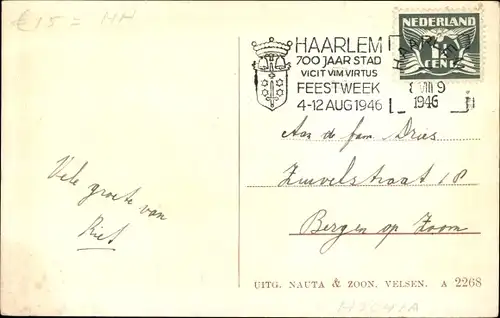 € 15 = HH
HAARLEM
700 JAAR STAD
VICIT VIM VIRTUS
FEESTWEEK
4-12 AUG 1946
NEDERLAND
CENT
HAARLEM
8 VIII 9
1946
Aan de fam. Dries
Zuivelstraat 18
Bergen op Zoom
Vele groete van
Riet
UITG. NAUTA & ZOON. VELSEN. A 2268